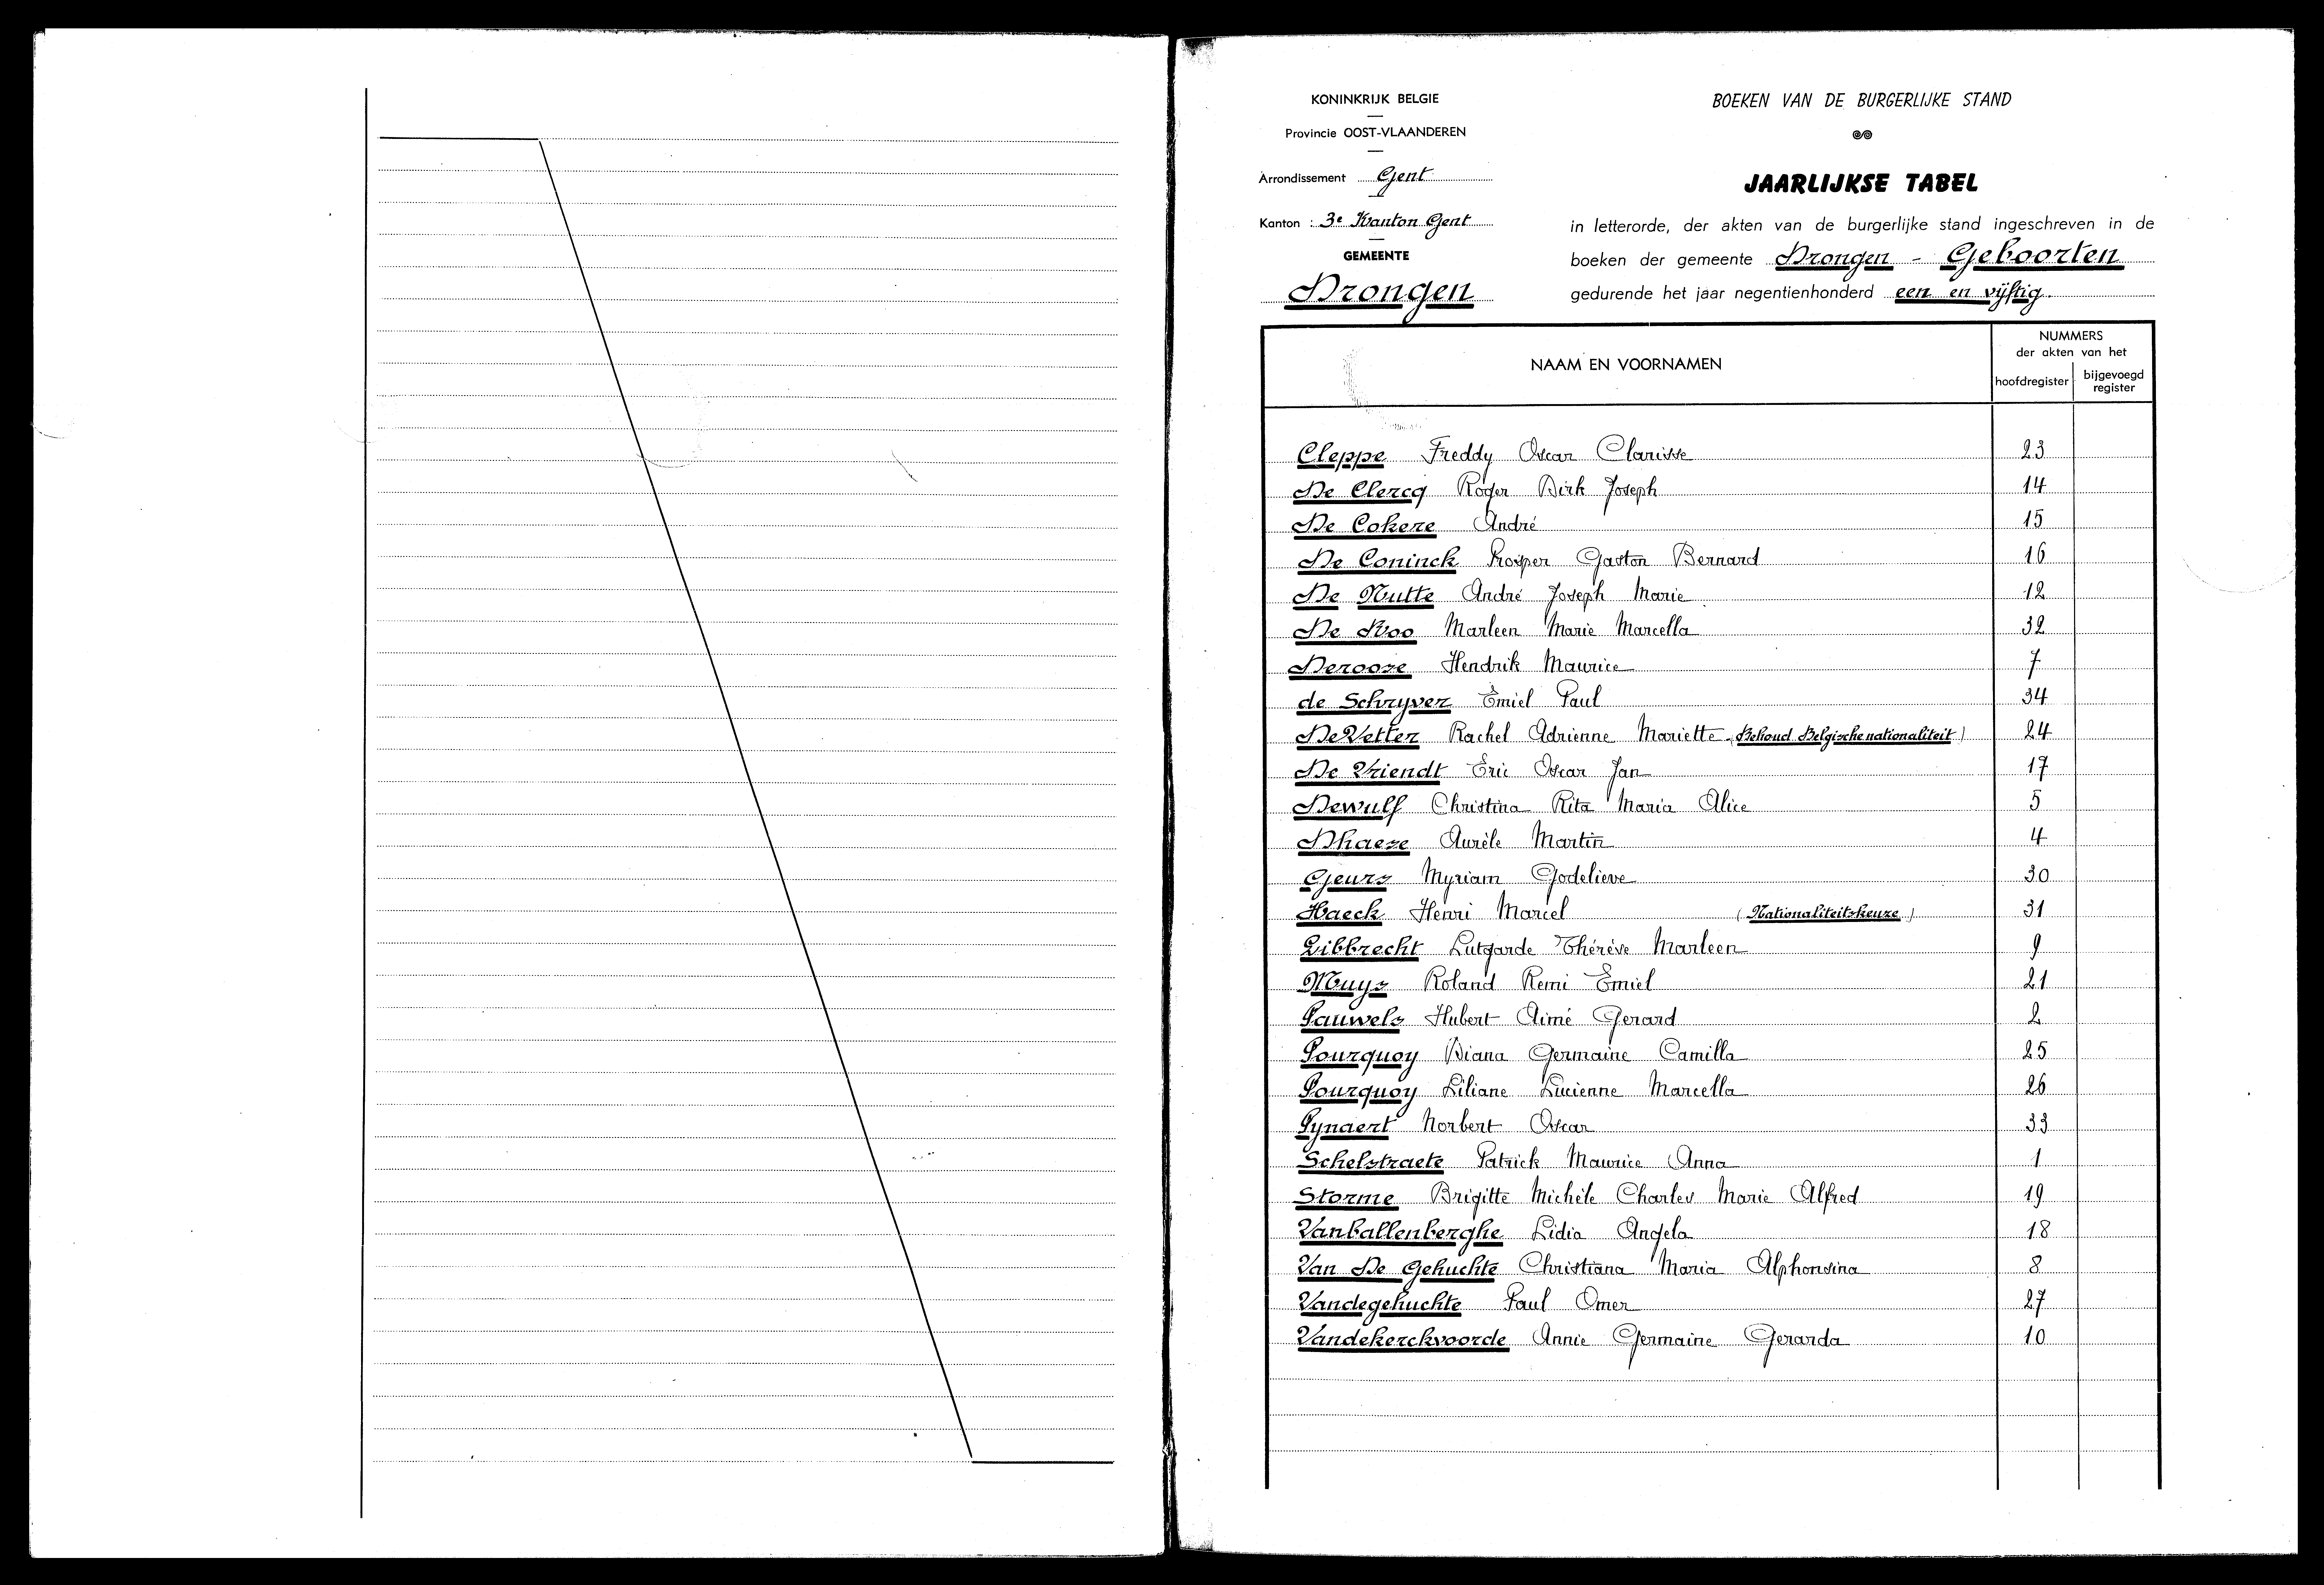 KONINKRIJK BELGIE
Provincie OOST-VLAANDEREN
Arrondissement Gent
Kanton : 3e Kanton Gent
GEMEENTE
Drongen
BOEKEN VAN DE BURGERLIJKE STAND
JAARLIJKSE TABEL
in letterorde, der akten van de burgerlijke stand ingeschreven in de
boeken der gemeente Drongen - Geboorten
gedurende het jaar negentienhonderd een en vijftig.
NAAM EN VOORNAMEN
NUMMERS
der akten van het
hoofdregister
bijgevoegd
register
Cleppe Freddy Oscar Clarisse 23
De Clercq Roger Dirk Joseph 14
De Cokere André 15
De Coninck Prosper Gaston Bernard 16
De Mutte André Joseph Marie 12
De Roo Marleen Marie Marcella 32
Derooze Hendrik Maurice 7
de Schryver Emiel Paul 34
DeVetter Rachel Adrienne Mariette (Behoud Belgische nationaliteit) 24
De Vriendt Eric Oscar Jan 17
Dewulf Christina Rita Maria Alice 5
Dhaeze Aurèle Martin 4
Geurs Myriam Godelieve 30
Haeck Henri Marcel (Nationaliteitskeuze) 31
Libbrecht Lutgarde Thérèse Marleen 9
Muys Roland Remi Emiel 21
Pauwels Hubert Aimé Gerard 2
Pourquoy Diana Germaine Camilla 25
Pourquoy Liliane Lucienne Marcella 26
Pynaert Norbert Oscar 33
Schelstraete Patrick Maurice Anna 1
Storme Brigitte Michèle Charles Marie Alfred 19
Vanballenberghe Lidia Angela 18
Van De Gehuchte Christiana Maria Alphonsina 8
Vandegehuchte Paul Omer 27
Vandekerckvoorde Annie Germaine Gerarda 10